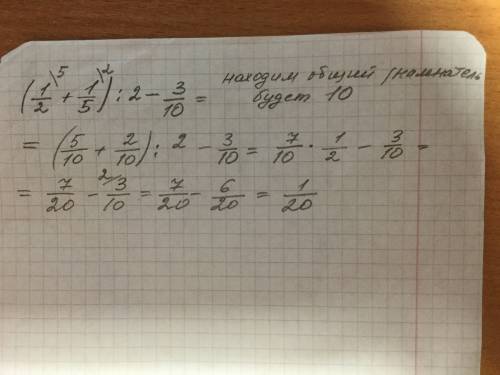 (1/2 \5 + 1/5 \2) : 2 − 3/10 = находим общий знаменатель
будет 10
= (5/10 + 2/10) : 2 − 3/10 = 7/10 · 1/2 − 3/10 =
= 7/20 − 2/ 3/10 = 7/20 − 6/20 = 1/20